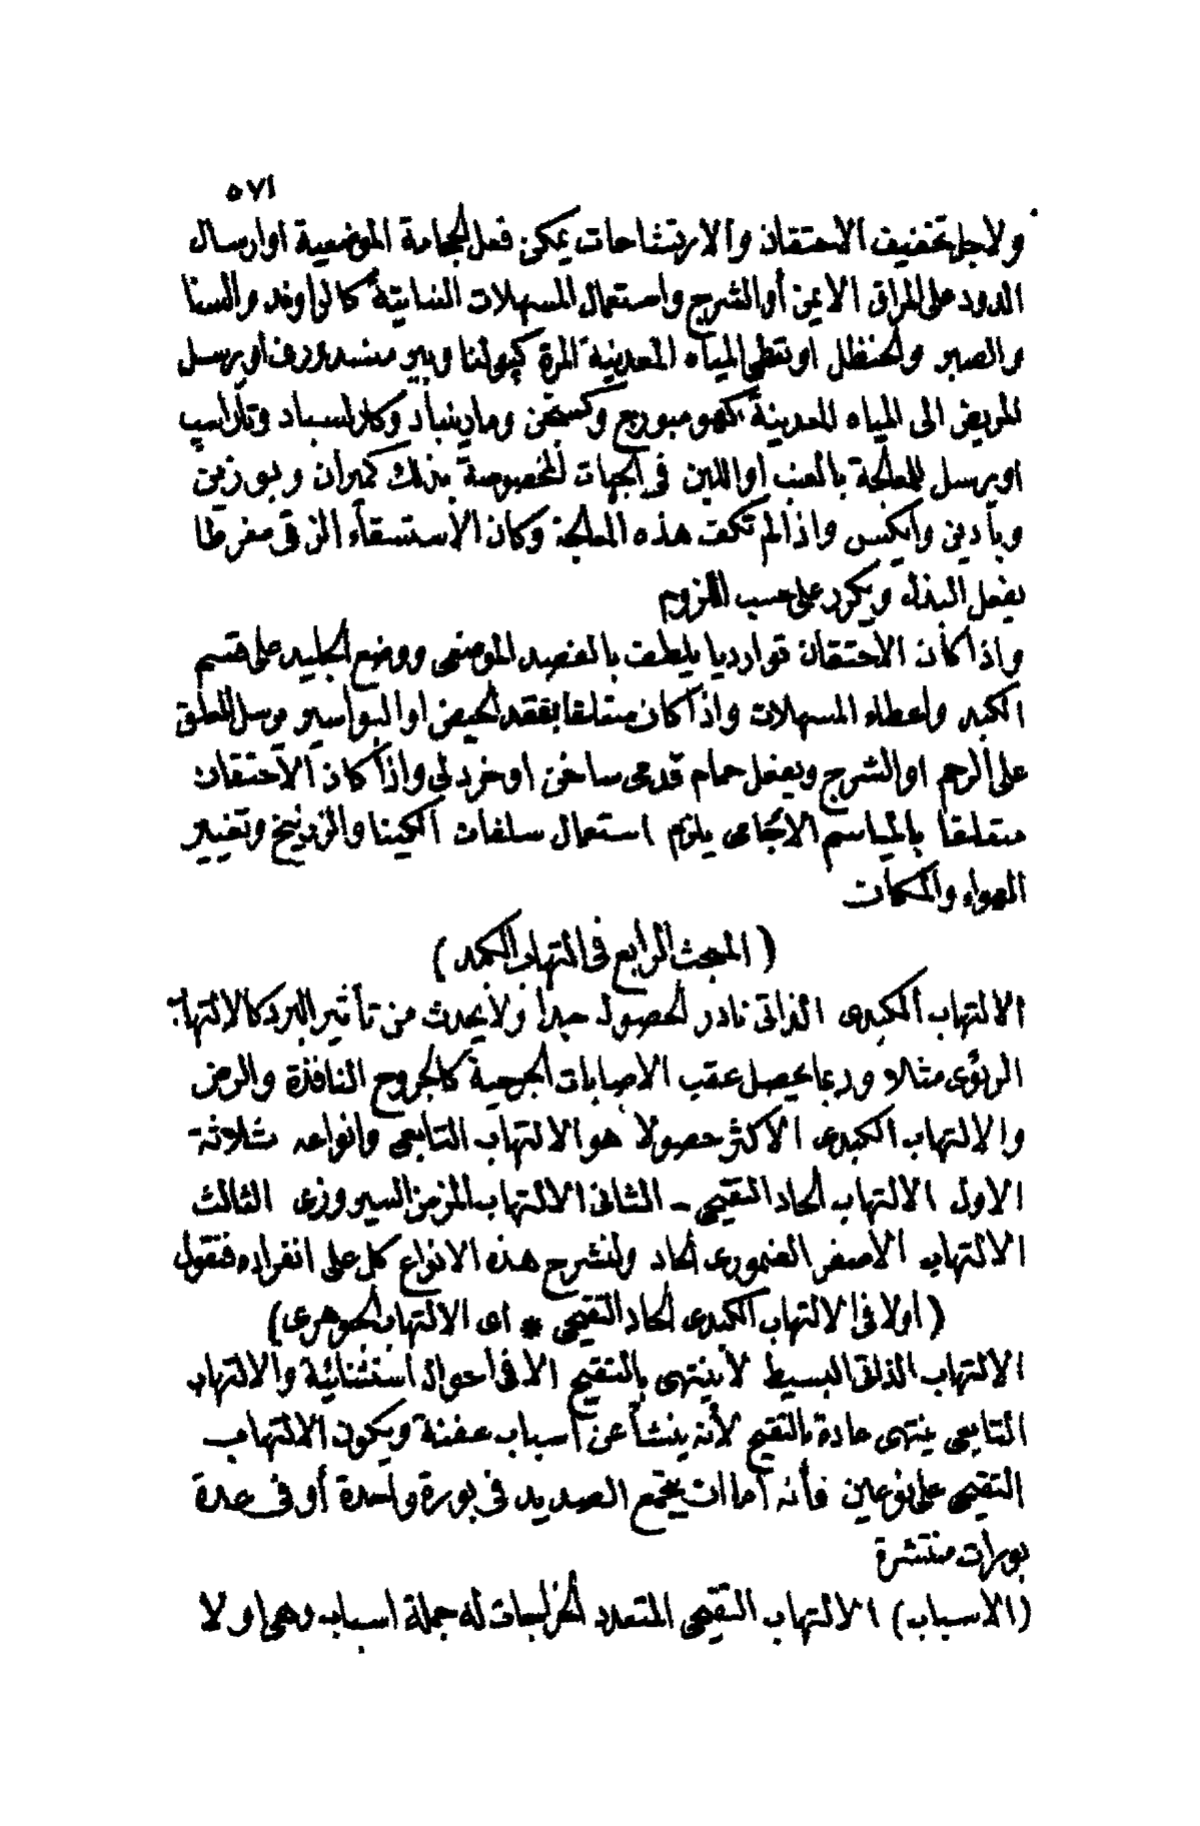 ٥٧١
ولاجل تخفيف الاحتقان والارتشاحات يمكن فعل الحجامة الموضعية او ارسال
الدود على المراق الايمن أو الشرج واستعمال المسهلات النباتية كالراوند والسنا
والصبر والحنظل او تعطى المياه المعدنية المرة كپولنا وبير منسدورف او يرسل
المريض الى المياه المعدنية كهومبورج وكستجن ومارينباد وكارلسباد وتاراسپ
او يرسل للمعالجة بالعنب او اللبن فى الجهات المخصوصة بذلك كميران وبوزين
وبادين وايكس واذا لم تكف هذه المعالجة وكان الاستسقاء الزقى مفرطا
يفعل البذل ويكرر على حسب اللزوم
واذا كان الاحتقان تواردیا يلطف بالفصد الموضعى ووضع الجليد على قسم
الكبد واعطاء المسهلات واذا كان متعلقا بفقد الحيض او البواسير يرسل العلق
على الرحم او الشرج ويفعل حمام قدمى ساخن او خردلى واذا كان الاحتقان
متعلقا بالمياسم الآجامى يلزم استعمال سلفات الكينا والزرنيخ وتغيير
الهواء والمكان
(المبحث الرابع فى التهاب الكبد)
الالتهاب الكبدى الذاتى نادر الحصول جدا ولا يحدث من تأثير البرد كالالتهاب
الرئوى مثلا وربما يحصل عقب الاصابات الجرحية كالجروح النافذة والرض
والالتهاب الكبدى الاكثر حصولا هو الالتهاب التابعى وانواعه ثلاثة
الاول الالتهاب الحاد التقيحى – الثانى الالتهاب المزمن السيروزى الثالث
الالتهاب الاصفر الضمورى الحاد ولنشرح هذه الانواع كل على انفراده فنقول
(اولا فى الالتهاب الكبدى الحاد التقيحى * اى الالتهاب الجوهرى)
الالتهاب الذاتى البسيط لا ينتهى بالتقيح الا فى أحوال استثنائية والالتهاب
التابعى ينتهى عادة بالتقيح لأنه ينشأ عن أسباب عفنة ويكون الالتهاب
التقيحى على نوعين فأنه أما ان يتجمع الصديد فى بورة واحدة أو فى عدة
بورات منتشرة
(الاسباب) الالتهاب التقيحى المتعدد الخراجات له جملة اسباب وهى اولا